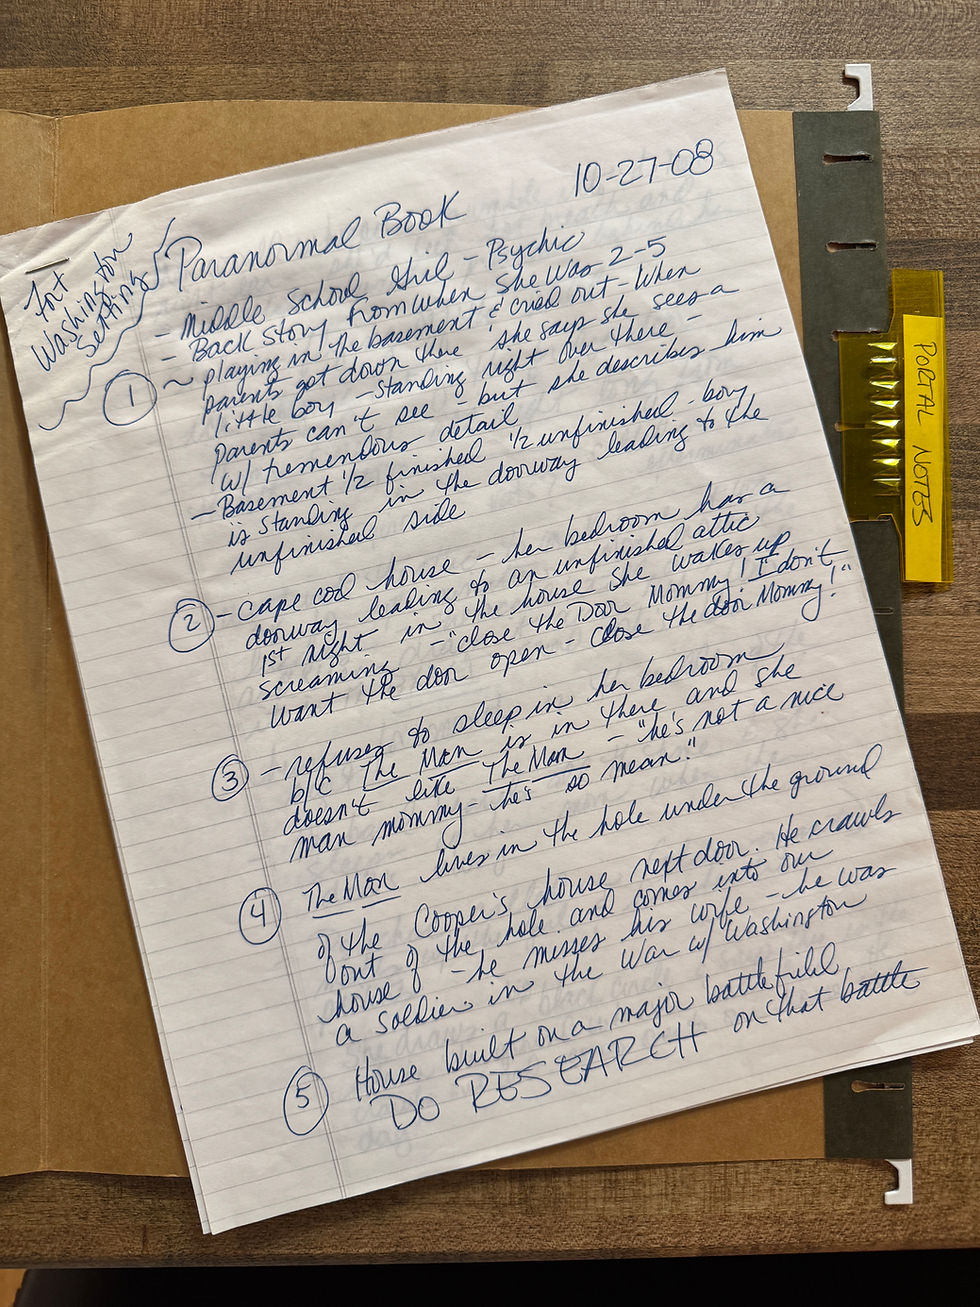 10-27-08
Fort
Washington
Setting
Paranormal Book
- Middle School Girl - Psychic
- Back Story from when She was 2-5
① ~ playing in the basement & cried out - When
parents got down there she says she sees a
little boy - standing right over there -
parents can't see - but she describes him
w/ tremendous detail
- Basement 1/2 finished 1/2 unfinished - boy
is standing in the doorway leading to the
unfinished side
② - cape cod house - her bedroom has a
doorway leading to an unfinished attic
1st night in the house she wakes up
screaming - "close the Door Mommy! I don't
want the door open - Close the door Mommy!"
③ - refuses to sleep in her bedroom
b/c The Man is in there and she
doesn't like The Man - "he's not a nice
man mommy - he's so mean."
④ The Man lives in the hole under the ground
of the Cooper's house next door. He crawls
out of the hole and comes into our
house - he misses his wife - he was
a soldier in the War w/ Washington
⑤ House built on a major battlefield
DO RESEARCH on that battle
PORTAL NOTES